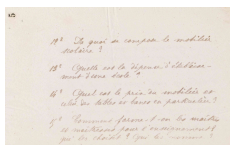 5
De quoi se compose le mobilier
scolaire ?
Quelle est la dépense d'établisse-
ment d'une école ?
Quel est le prix du mobilier
et des tables et bancs en particulier ?
Comment forme-t-on les maîtres
et maîtresses pour l'enseignement
qui les choisit ? qui les nomme ?